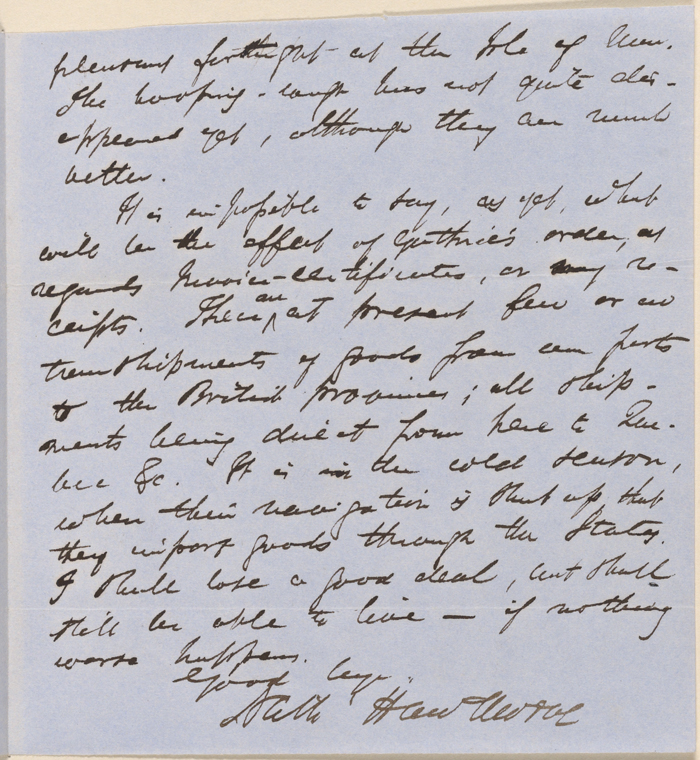 pleasant fortnight at the Isle of Man.
The hooping-cough has not quite dis-
appeared yet, although they are much
better.
It is impossible to say, as yet, what
will be the effect of Guthrie's order, as
regards Invoice-certificates, or my re-
ceipts. There are at present few or no
transshipments of goods from our ports
to the British provinces; all ship-
ments being direct from here to Que-
bec &c. It is in the cold season,
when their navigation is shut up, that
they import goods through the States.
I shall lose a good deal, but shall
still be able to live — if nothing
worse happens.
Good bye.
Nath Hawthorne